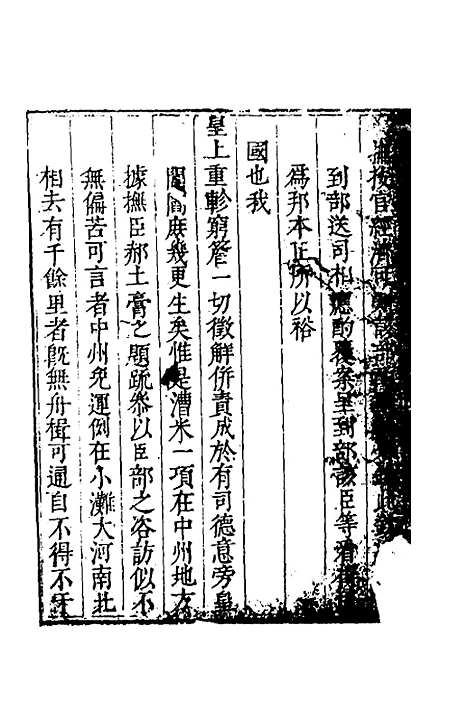 到部送司相應酌覆案呈到部該臣等看得
爲邦本正所以裕
國也我
皇上重軫窮簷一切徵解併責成於有司德意旁皇
閭閻庶幾更生矣惟是漕米一項在中州地方
據撫臣郝土膏之題疏叅以臣部之咨訪似不
無偏苦可言者中州兌運倒在小灘大河南北
相去有千餘里者旣無舟楫可通自不得不